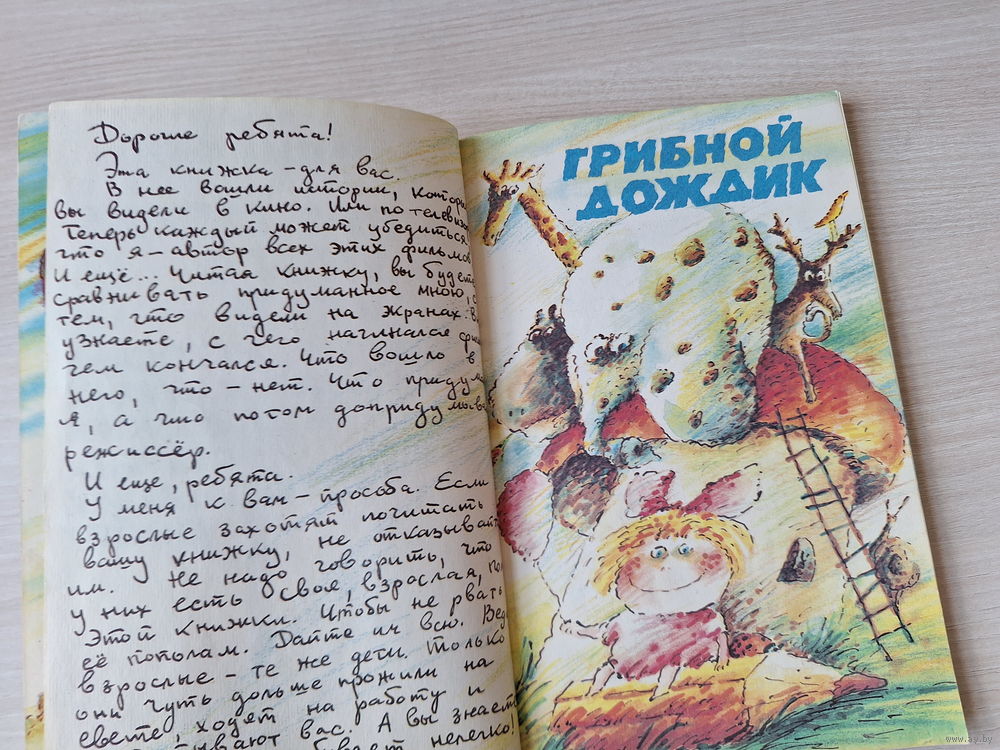 Дорогие ребята!
Эта книжка - для вас.
В нее вошли истории, котор
вы видели в кино. Или по телевиз
Теперь каждый может убедиться
что я - автор всех этих фильмов
И ещё... Читая книжку, вы будете
сравнивать придуманное мною, с
тем, что видели на экранах.
узнаете, с чего начинался фи
чем кончался. Что вошло в
него, что - нет. Что придум
я, а что потом допридумыва
режиссёр.
И еще, ребята.
У меня к вам - просьба. Если
взрослые захотят почитать
вашу книжку, не отказывайте
им. Не надо говорить, что
у них есть своя, взрослая, пол
этой книжки. Чтобы не рвать
её пополам. Дайте им всю. Вед
взрослые - те же дети. Только
они чуть дольше прожили на
свете, ходят на работу и
вас. А вы знаете
нелегко!
ГРИБНОЙ
ДОЖДИК
www.ay.by